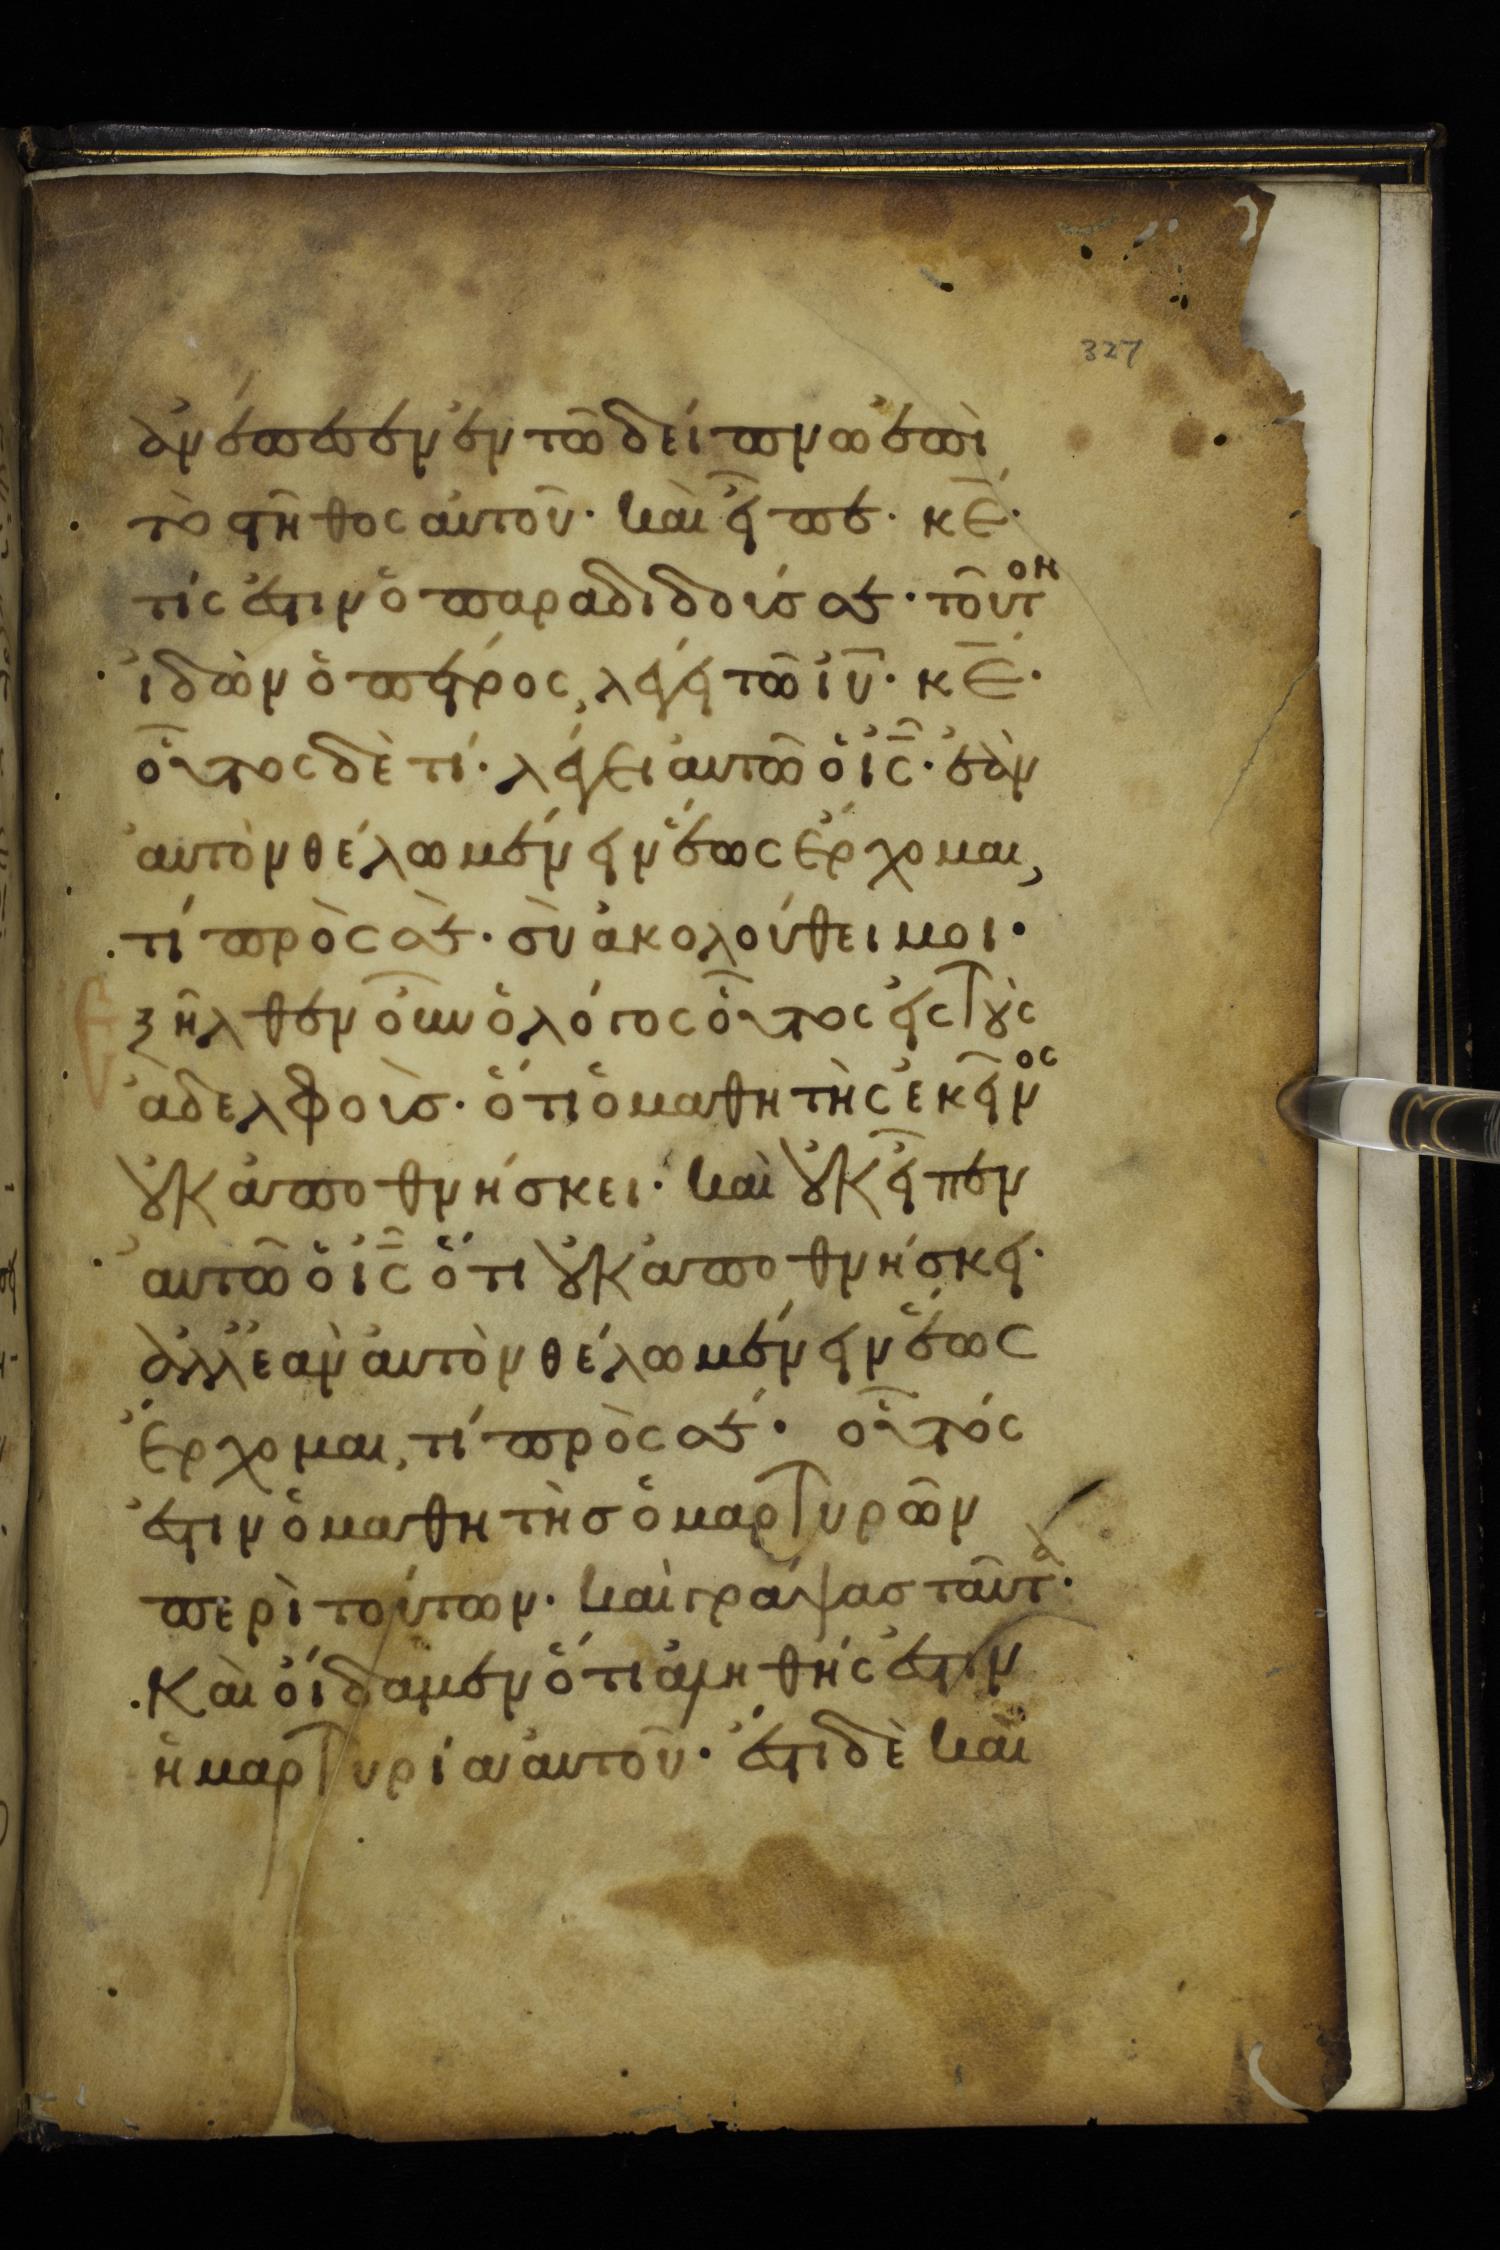 327
ἀνέπεσεν ἐν τῶ δείπνω ἐπὶ
τὸ στῆθος αὐτοῦ· καὶ εἶπε· κ̅ε̅·
τίς ἐστιν ὁ παραδιδούσ σε· τοῦτον
ἰδὼν ὁ πέτρος, λέγει τῶ ι̅υ̅· κ̅ε̅·
οὗτος δὲ τί· λέγει αὐτῶ ὁ ι̅ς̅· ἐὰν
αὐτὸν θέλω μένειν ἕως ἔρχομαι,
τί πρὸς σέ· σὺ ἀκολούθει μοι·
Ἐξῆλθεν οὖν ὁ λόγος οὗτος εἰς τοὺς
ἀδελφούσ· ὅτι ὁ μαθητὴς ἐκεῖνος
οὐκ ἀποθνήσκει· καὶ οὐκ εἶπεν
αὐτῶ ὁ ι̅ς̅ ὅτι οὐκ ἀποθνήσκει·
ἀλλ' ἐὰν αὐτὸν θέλω μένειν ἕως
ἔρχομαι, τί πρὸς σέ· οὗτός
ἐστιν ὁ μαθητὴσ ὁ μαρτυρῶν
περὶ τούτων· καὶ γράψασ ταῦτα·
Καὶ οἴδαμεν ὅτι ἀληθής ἐστιν
ἡ μαρτυρία αὐτοῦ· ἔστι δὲ καὶ